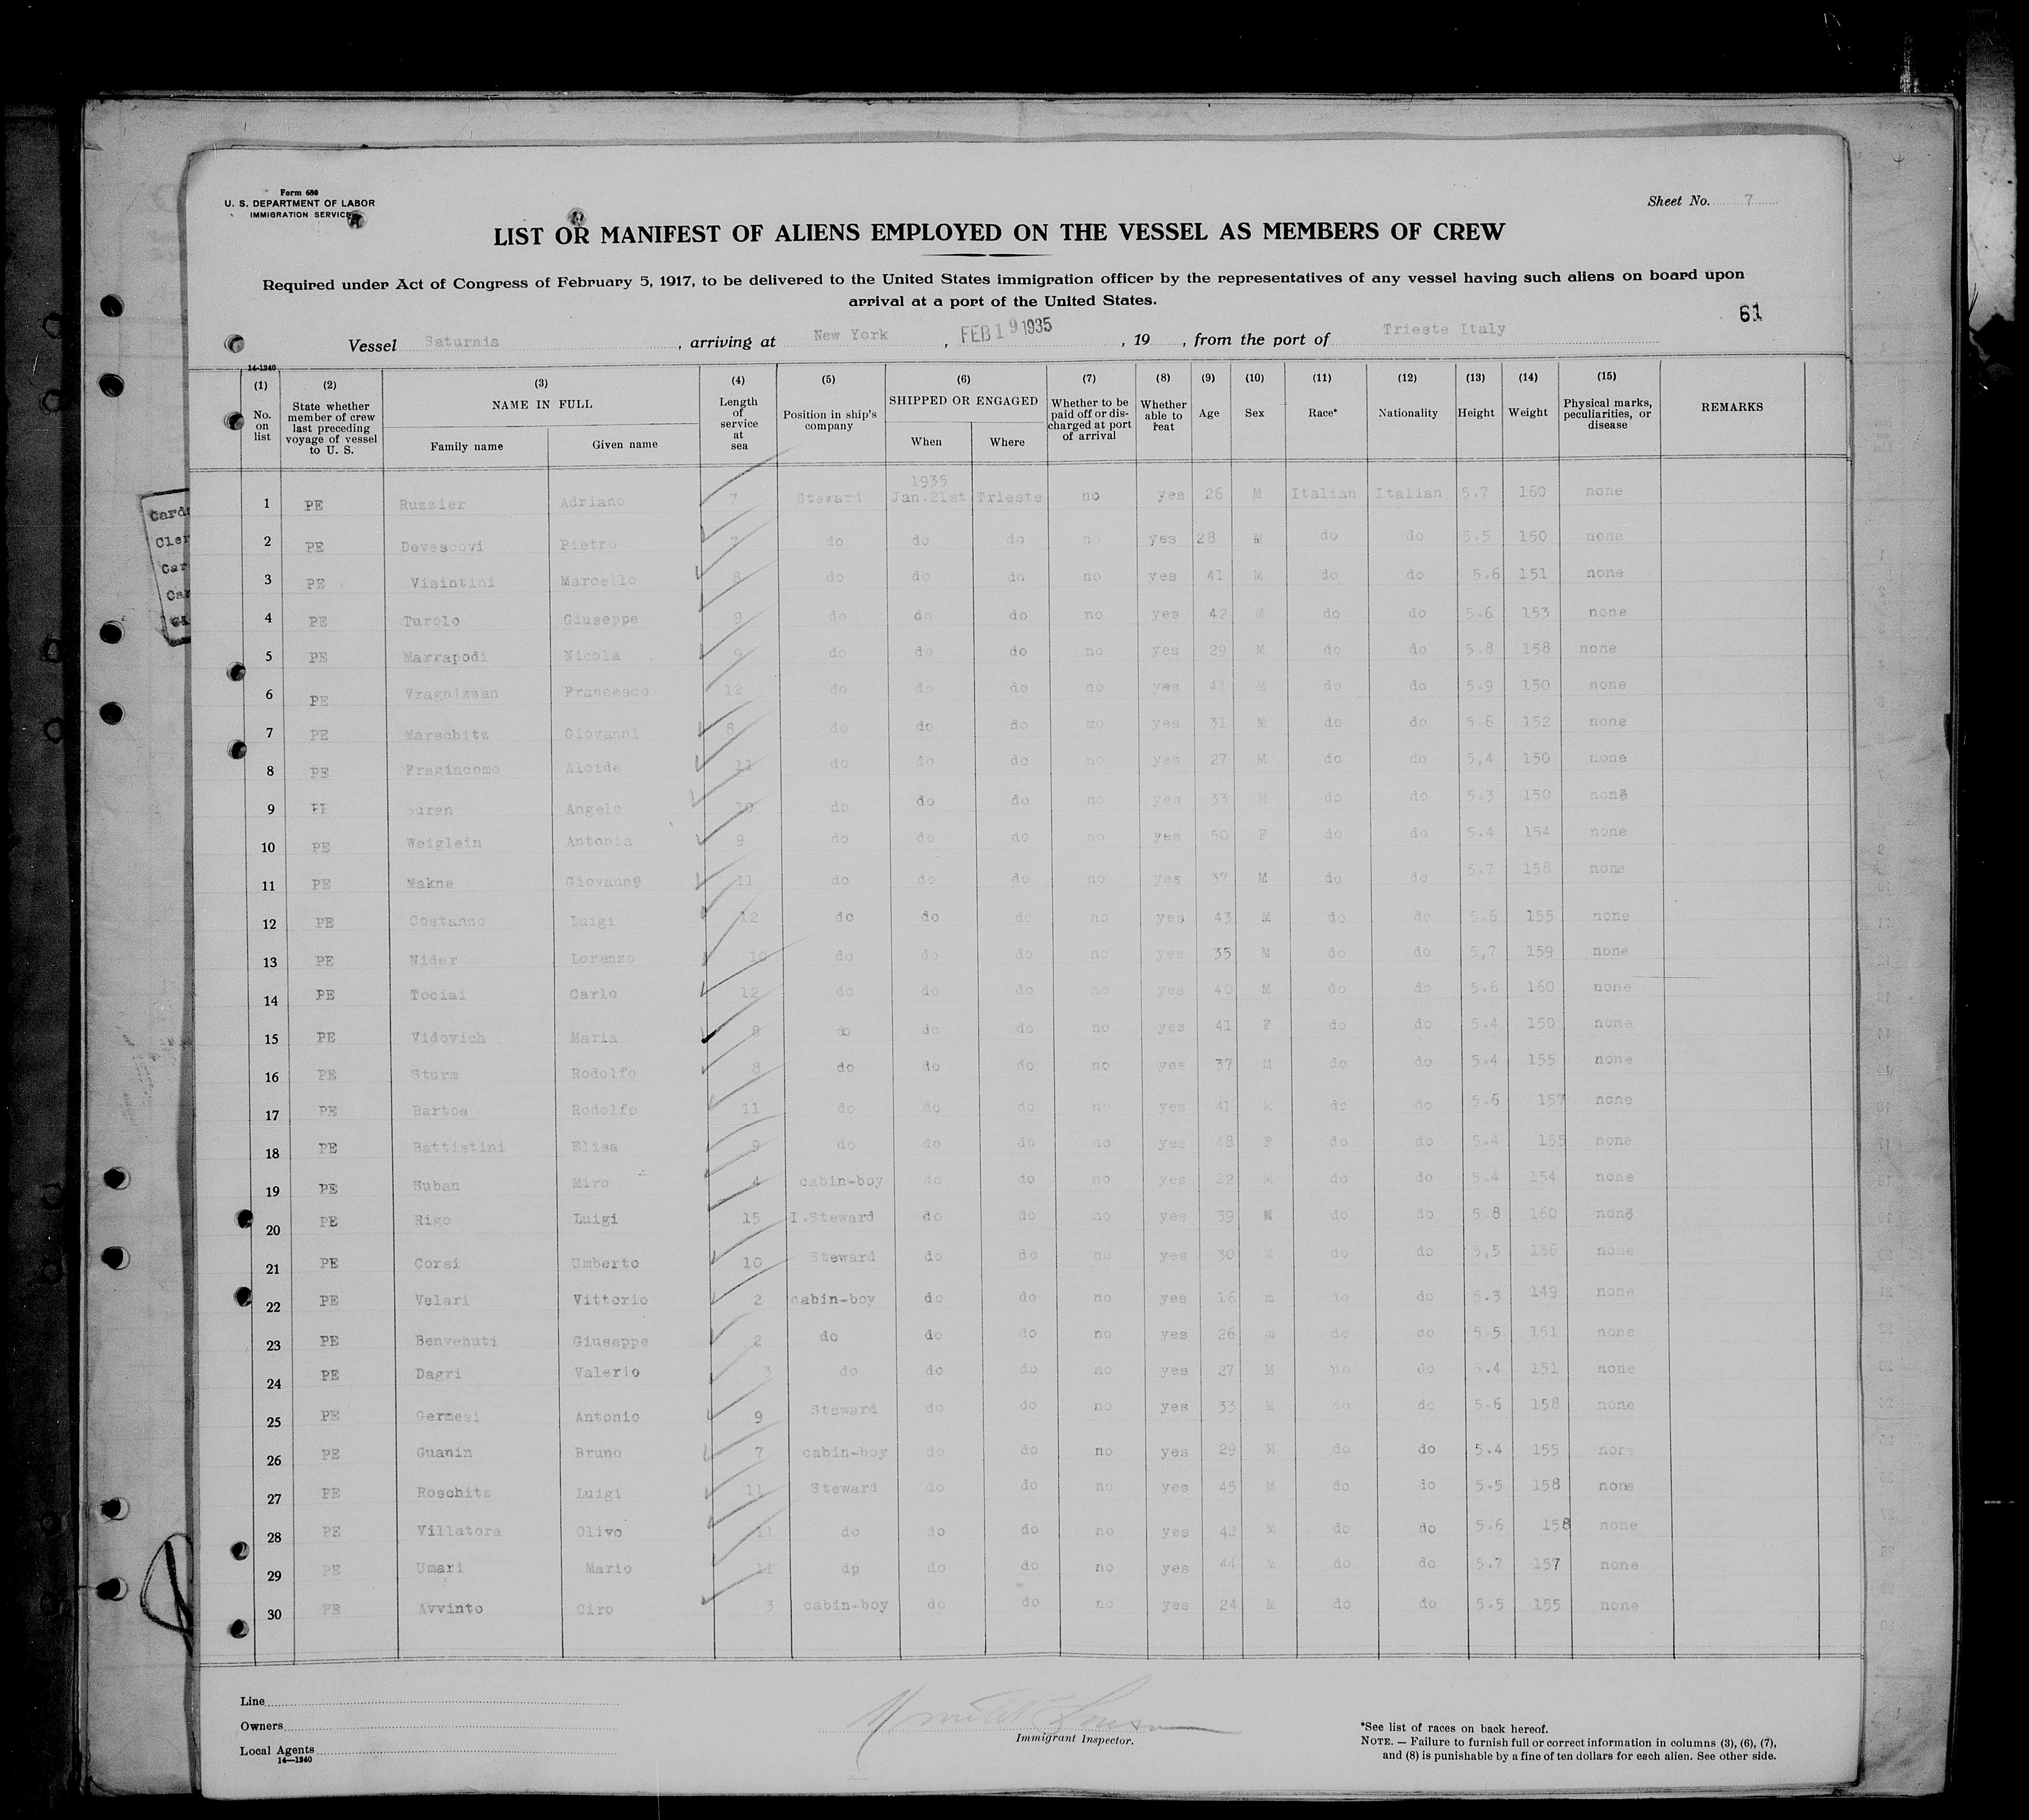 Form 680
U. S. DEPARTMENT OF LABOR
IMMIGRATION SERVICE
Sheet No. 7
LIST OR MANIFEST OF ALIENS EMPLOYED ON THE VESSEL AS MEMBERS OF CREW
Required under Act of Congress of February 5, 1917, to be delivered to the United States immigration officer by the representatives of any vessel having such aliens on board upon
arrival at a port of the United States.
61
Vessel Saturnia, arriving at New York, FEB 19 1935, 19 , from the port of Trieste Italy
14-1240
(1) (2) (3) (4) (5) (6) (7) (8) (9) (10) (11) (12) (13) (14) (15)
No. on list State whether member of crew last preceding voyage of vessel to U. S. NAME IN FULL Family name Given name Length of service at sea Position in ship's company SHIPPED OR ENGAGED When Where Whether to be paid off or discharged at port of arrival Whether able to reat Age Sex Race* Nationality Height Weight Physical marks, peculiarities, or disease REMARKS
1935
1 PE Ruzzier Adriano 7 Steward Jan.21st Trieste no yes 26 M Italian Italian 5.7 160 none
2 PE Devescovi Pietro 7 do do do no yes 28 M do do 5.5 150 none
3 PE Visintini Marcello 8 do do do no yes 41 M do do 5.6 151 none
4 PE Turolo Giuseppe 9 do do do no yes 42 M do do 5.6 153 none
5 PE Marrapodi Nicola 9 do do do no yes 29 M do do 5.8 158 none
6 PE Vragnizsan Francesco 12 do do do no yes 41 M do do 5.9 150 none
7 PE Marschitz Giovanni 8 do do do mo yes 31 M do do 5.6 152 none
8 PE Fragiacomo Alcide 11 do do do no yes 27 M do do 5,4 150 none
9 Angelo 10 do do do no yes 33 M do do 5.3 150 none
10 PE Weiglein Antonia 9 do do do no yes 50 F do do 5.4 154 none
11 PE Makne Giovanny 11 do do do no yes 37 M do do 5.7 158 none
12 PE Costanzo Luigi 12 do do do no yes 43 M do do 5.6 155 none
13 PE Nider Lorenzo 10 do do do no yes 35 M do do 5,7 159 none
14 PE Tociai Carlo 12 do do do no yes 40 M do do 5.6 160 none
15 PE Vidovich Maria 8 do do do no yes 41 F do do 5.4 150 none
16 PE Sturm Rodolfo 8 do do do no yes 37 M do do 5.4 155 none
17 PE Bartos Rodolfo 11 do do do no yes 41 M do do 5.6 157 none
18 PE Battistini Elisa 9 do do do no yes 48 F do do 5.4 155 none
19 PE Suban Miro 4 cabin-boy do do no yes 22 M do do 5.4 154 none
20 PE Rigo Luigi 15 I.Steward do do no yes 39 M do do 5 8 160 none
21 PE Corsi Umberto 10 Steward do do no yes 30 M do do 5,5 156 none
22 PE Velari Vittorio 2 cabin-boy do do no yes 16 m do do 5.3 149 none
23 PE Benvenuti Giuseppe 2 do do do no yes 26 m do do 5.5 151 none
24 PE Dagri Valerio 3 do do do no yes 27 M do do 5.4 151 none
25 PE Germesi Antonio 9 Steward do do no yes 33 M do do 5.6 158 none
26 PE Guanin Bruno 7 cabin-boy do do no yes 29 M do do 5.4 155 none
27 PE Roschitz Luigi 11 Steward do do no yes 45 M do do 5.5 158 none
28 PE Villatora Olivo 11 do do do no yes 42 M do do 5.6 158 none
29 PE Umari Mario 11 dp do do no yes 44 M do do 5.7 157 none
30 PE Avvinto Ciro 3 cabin-boy do do no yes 24 M do do 5.5 155 none
Line
Owners
Local Agents
14—1240
Immigrant Inspector.
*See list of races on back hereof.
NOTE. — Failure to furnish full or correct information in columns (3), (6), (7),
and (8) is punishable by a fine of ten dollars for each alien. See other side.